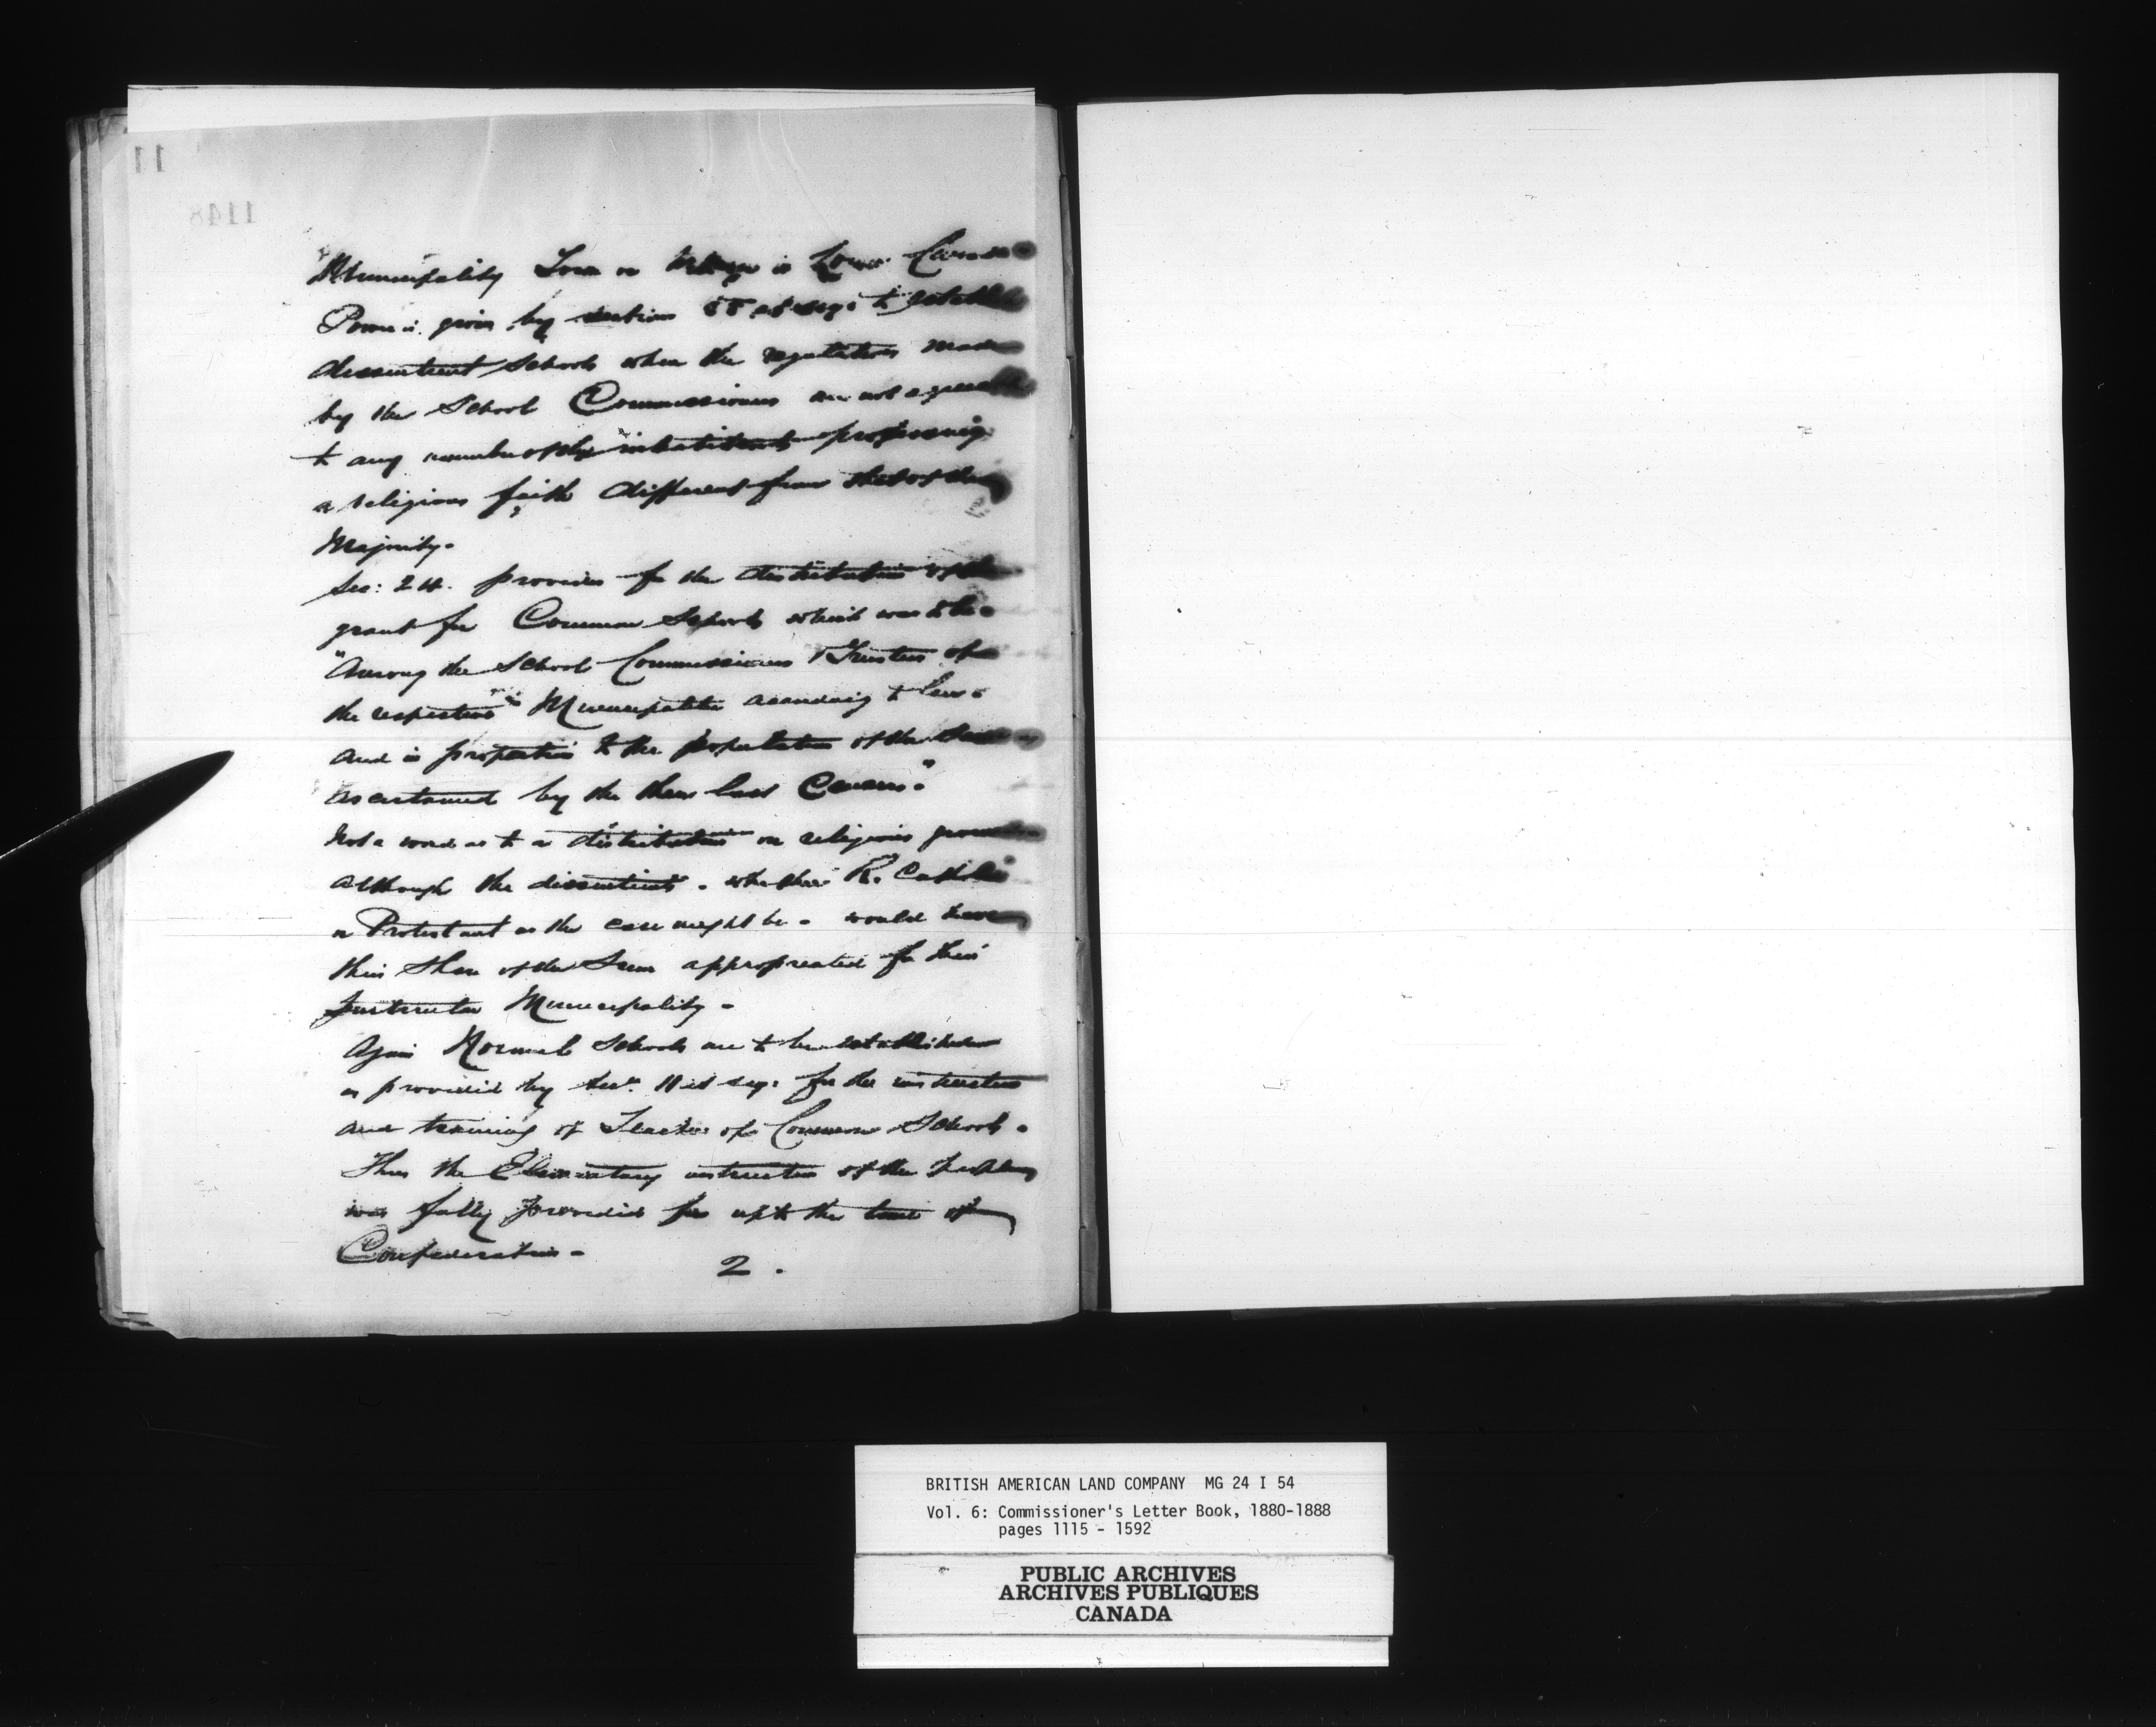 1148
"Municipality Town or Village in Lower Canada
Power is given by section 55 et seq. to establish
dissentient schools when the regulations made
by the School Commissioners are not agreeable
to any number of the inhabitants professing
a religious faith different from that of the
Majority.
Sec: 24. provides for the distribution of the
grant for Common Schools which was to be
"Among the School Commissioners & Trustees of
the respective" Municipalities according to law.
and in proportion to the population of the same
ascertained by the then last Census."
Not a word as to a distribution on religious grounds
although the dissentients. whether R. Catholic
or Protestant as the case might be. would have
their share of the Sum appropriated for their
particular Municipality.
Again Normal Schools are to be established
as provided by Sec. 11 et seq: for the instruction
and training of Teachers of Common Schools.
Thus the Elementary instruction of the
was fully provided for up to the time of
Confederation.
2.
BRITISH AMERICAN LAND COMPANY MG 24 I 54
Vol. 6: Commissioner's Letter Book, 1880-1888
pages 1115 - 1592
PUBLIC ARCHIVES
ARCHIVES PUBLIQUES
CANADA